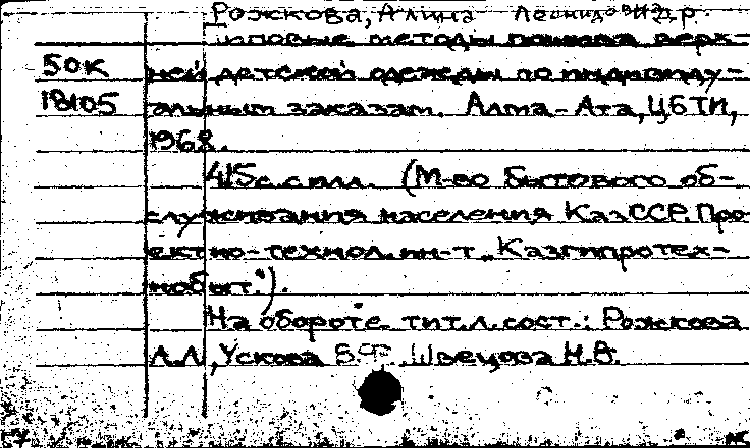 Рожкова, Алина Леонидовна и др.
Типовые методы пошива верх-
50к ней детской одежды по индивиду-
18105 альным заказам. Алма-Ата, ЦБТИ,
1968.
415с. с илл. (М-во бытового об-
служивания населения КазССР. Про-
ектно-технол. ин-т „Казгипротех-
нобыт").
На обороте тит. л. сост.: Рожкова
А.Л., Ускова В.Ф. Швецова Н.В.